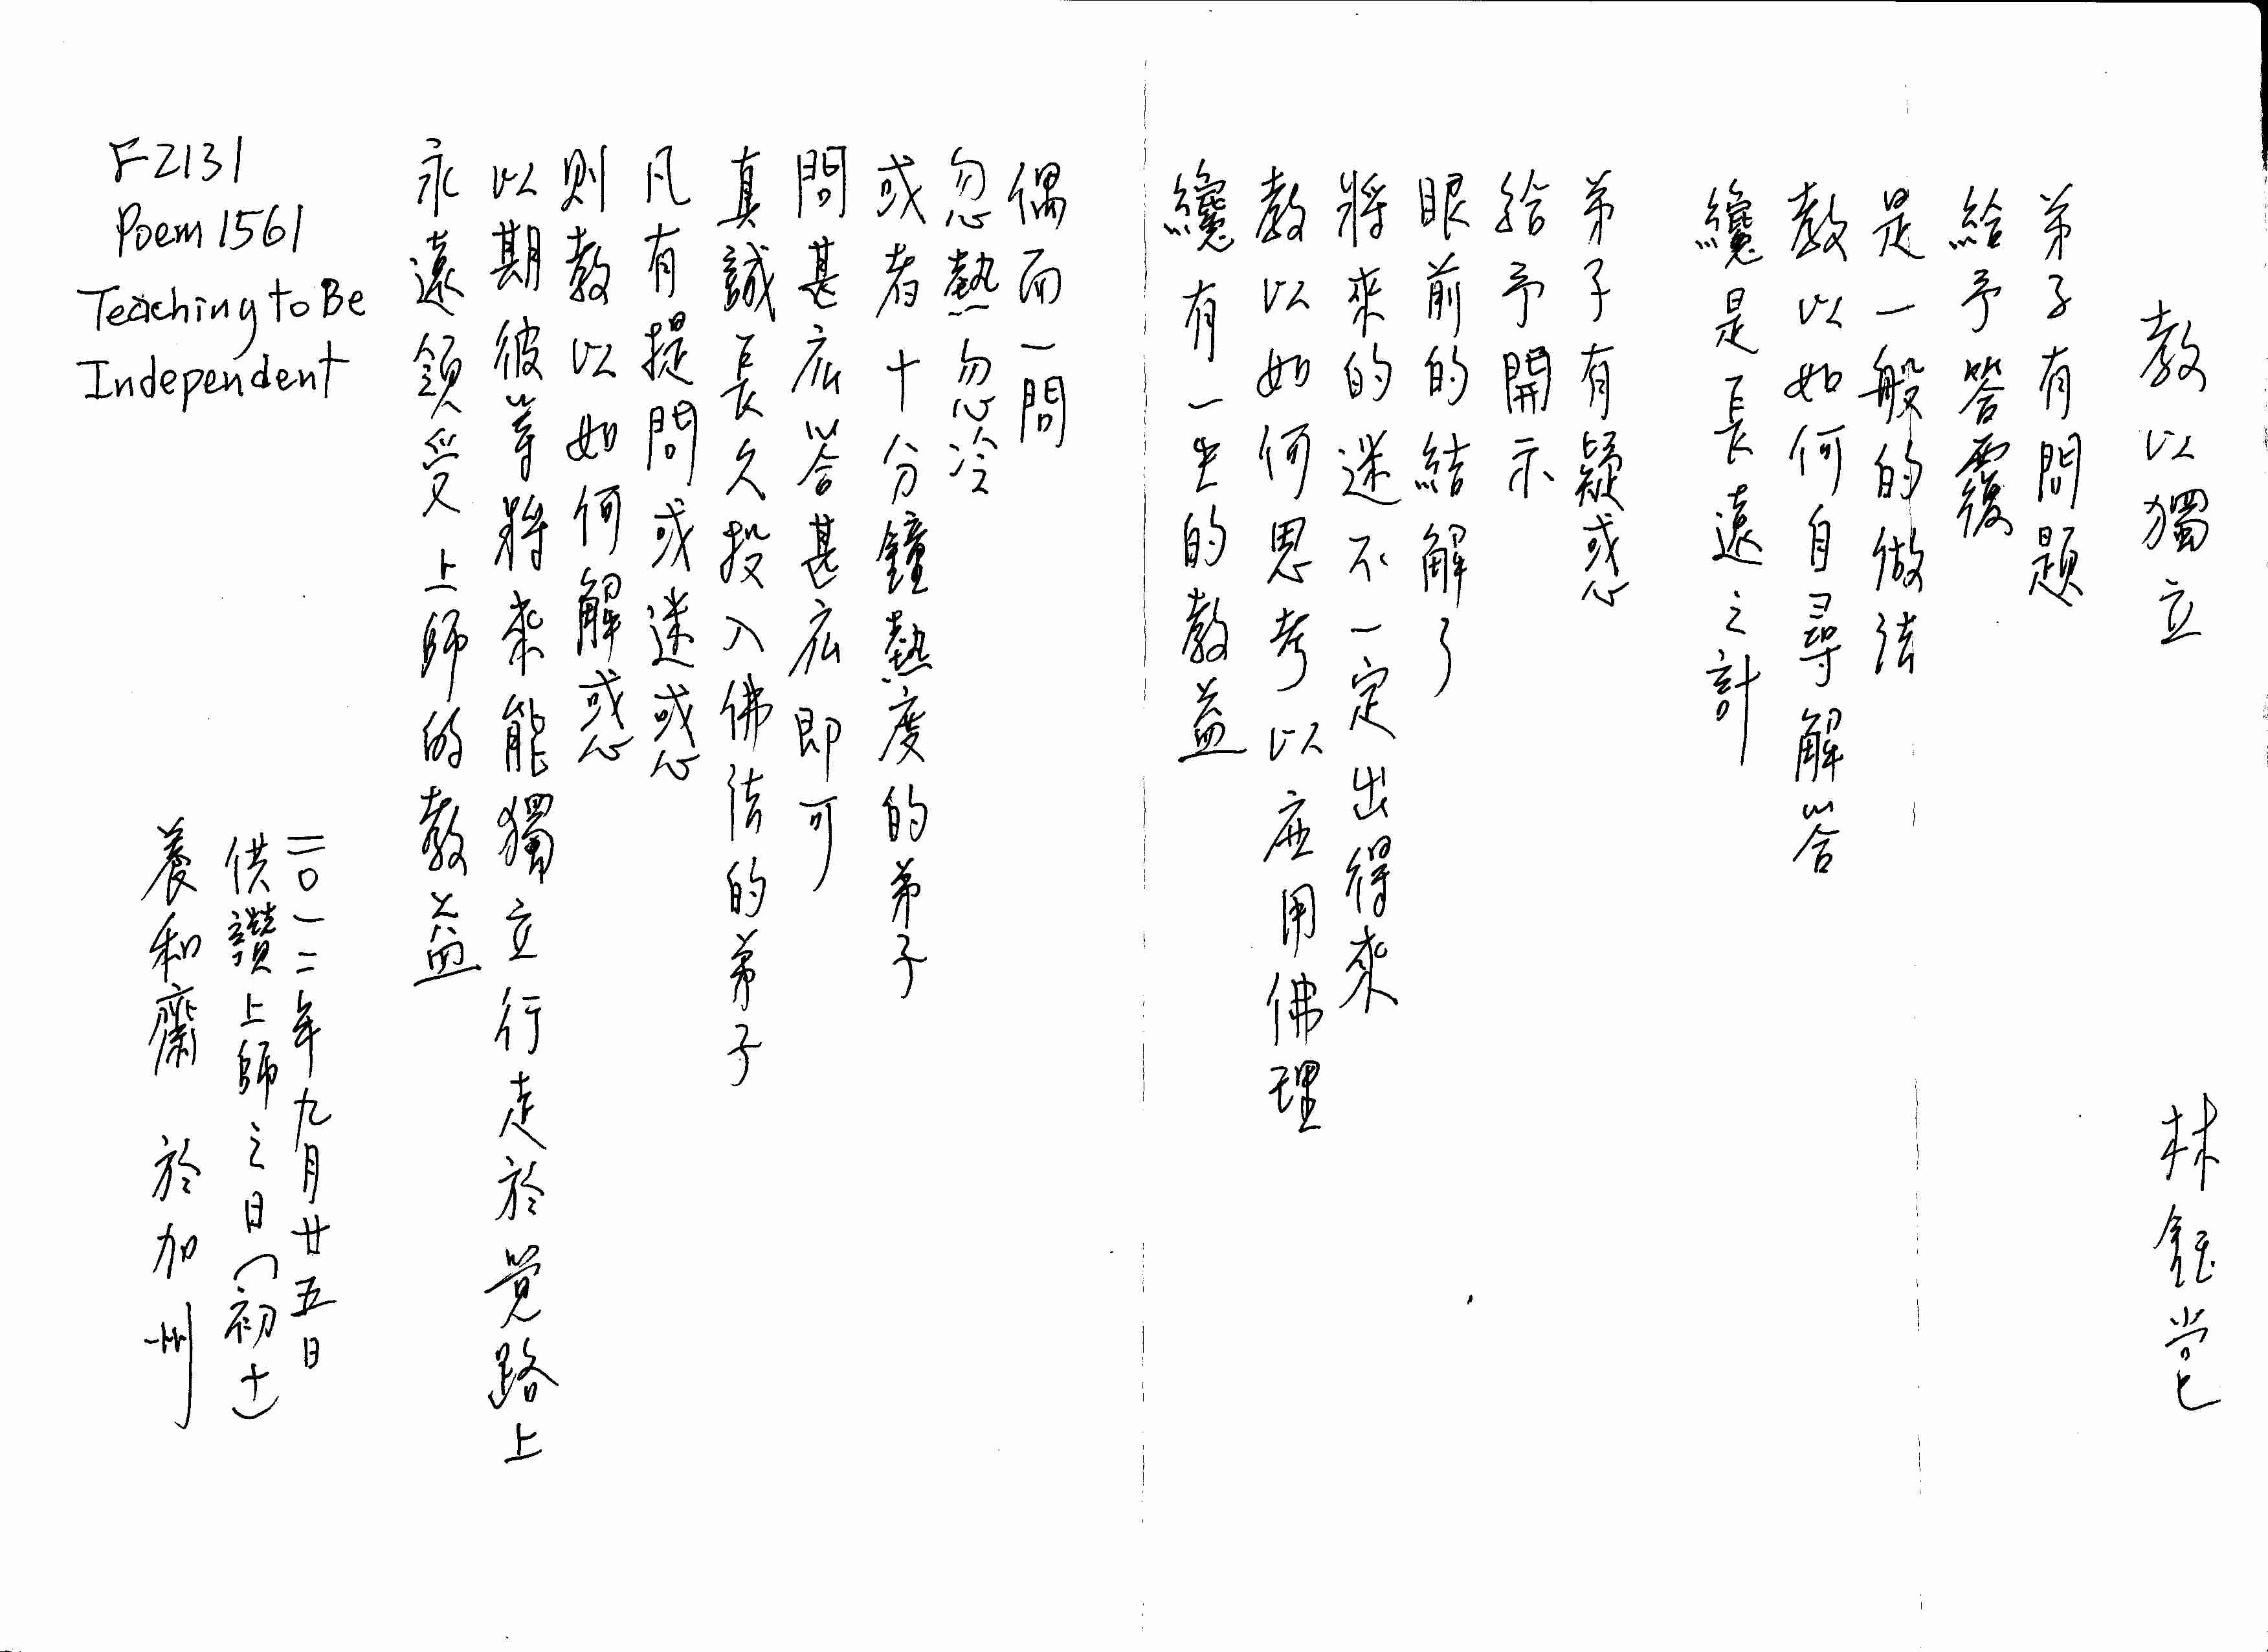 教以獨立 林鈺堂
弟子有問題
給予答覆
是一般的做法
教以如何自尋解答
纔是長遠之計
弟子有疑惑
給予開示
眼前的結解了
將來的迷不一定出得來
教以如何思考以應用佛理
纔有一生的教益
偶而一問
忽熱忽冷
或者十分鐘熱度的弟子
問甚底答甚底即可
真誠長久投入佛法的弟子
凡有提問或迷惑
則教以如何解惑
以期彼等將來能獨立行走於覺路上
永遠領受上師的教益
二〇一二年九月廿五日
供讚上師之日(初十)
養和齋 於加州
F2131
Poem 1561
Teaching to Be
Independent